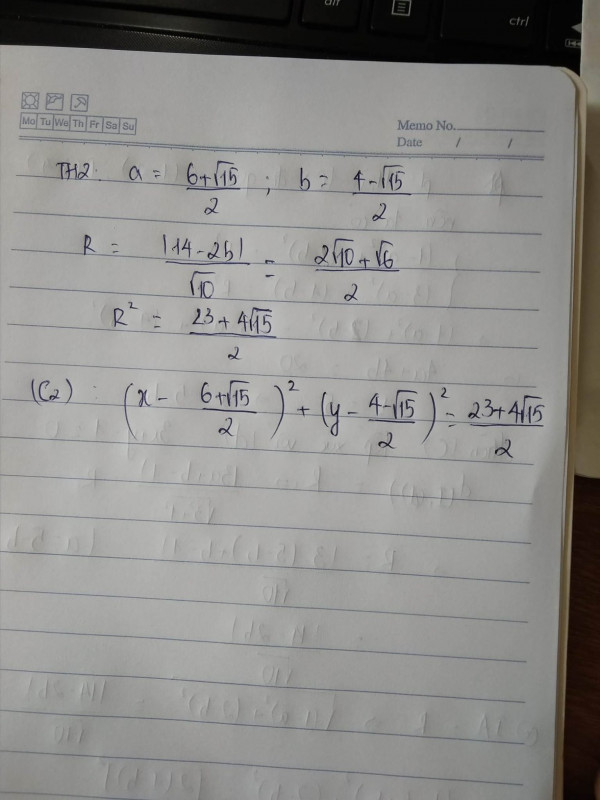 alt
ctrl
Mo Tu We Th Fr Sa Su
Memo No.
Date / /
TH2: a = \frac{6+\sqrt{15}}{2} ; b = \frac{4-\sqrt{15}}{2}
R = \frac{|14-2b|}{\sqrt{10}} = \frac{2\sqrt{10}+\sqrt{6}}{2}
R^2 = \frac{23+4\sqrt{15}}{2}
(C2) : \left(x - \frac{6+\sqrt{15}}{2}\right)^2 + \left(y - \frac{4-\sqrt{15}}{2}\right)^2 = \frac{23+4\sqrt{15}}{2}